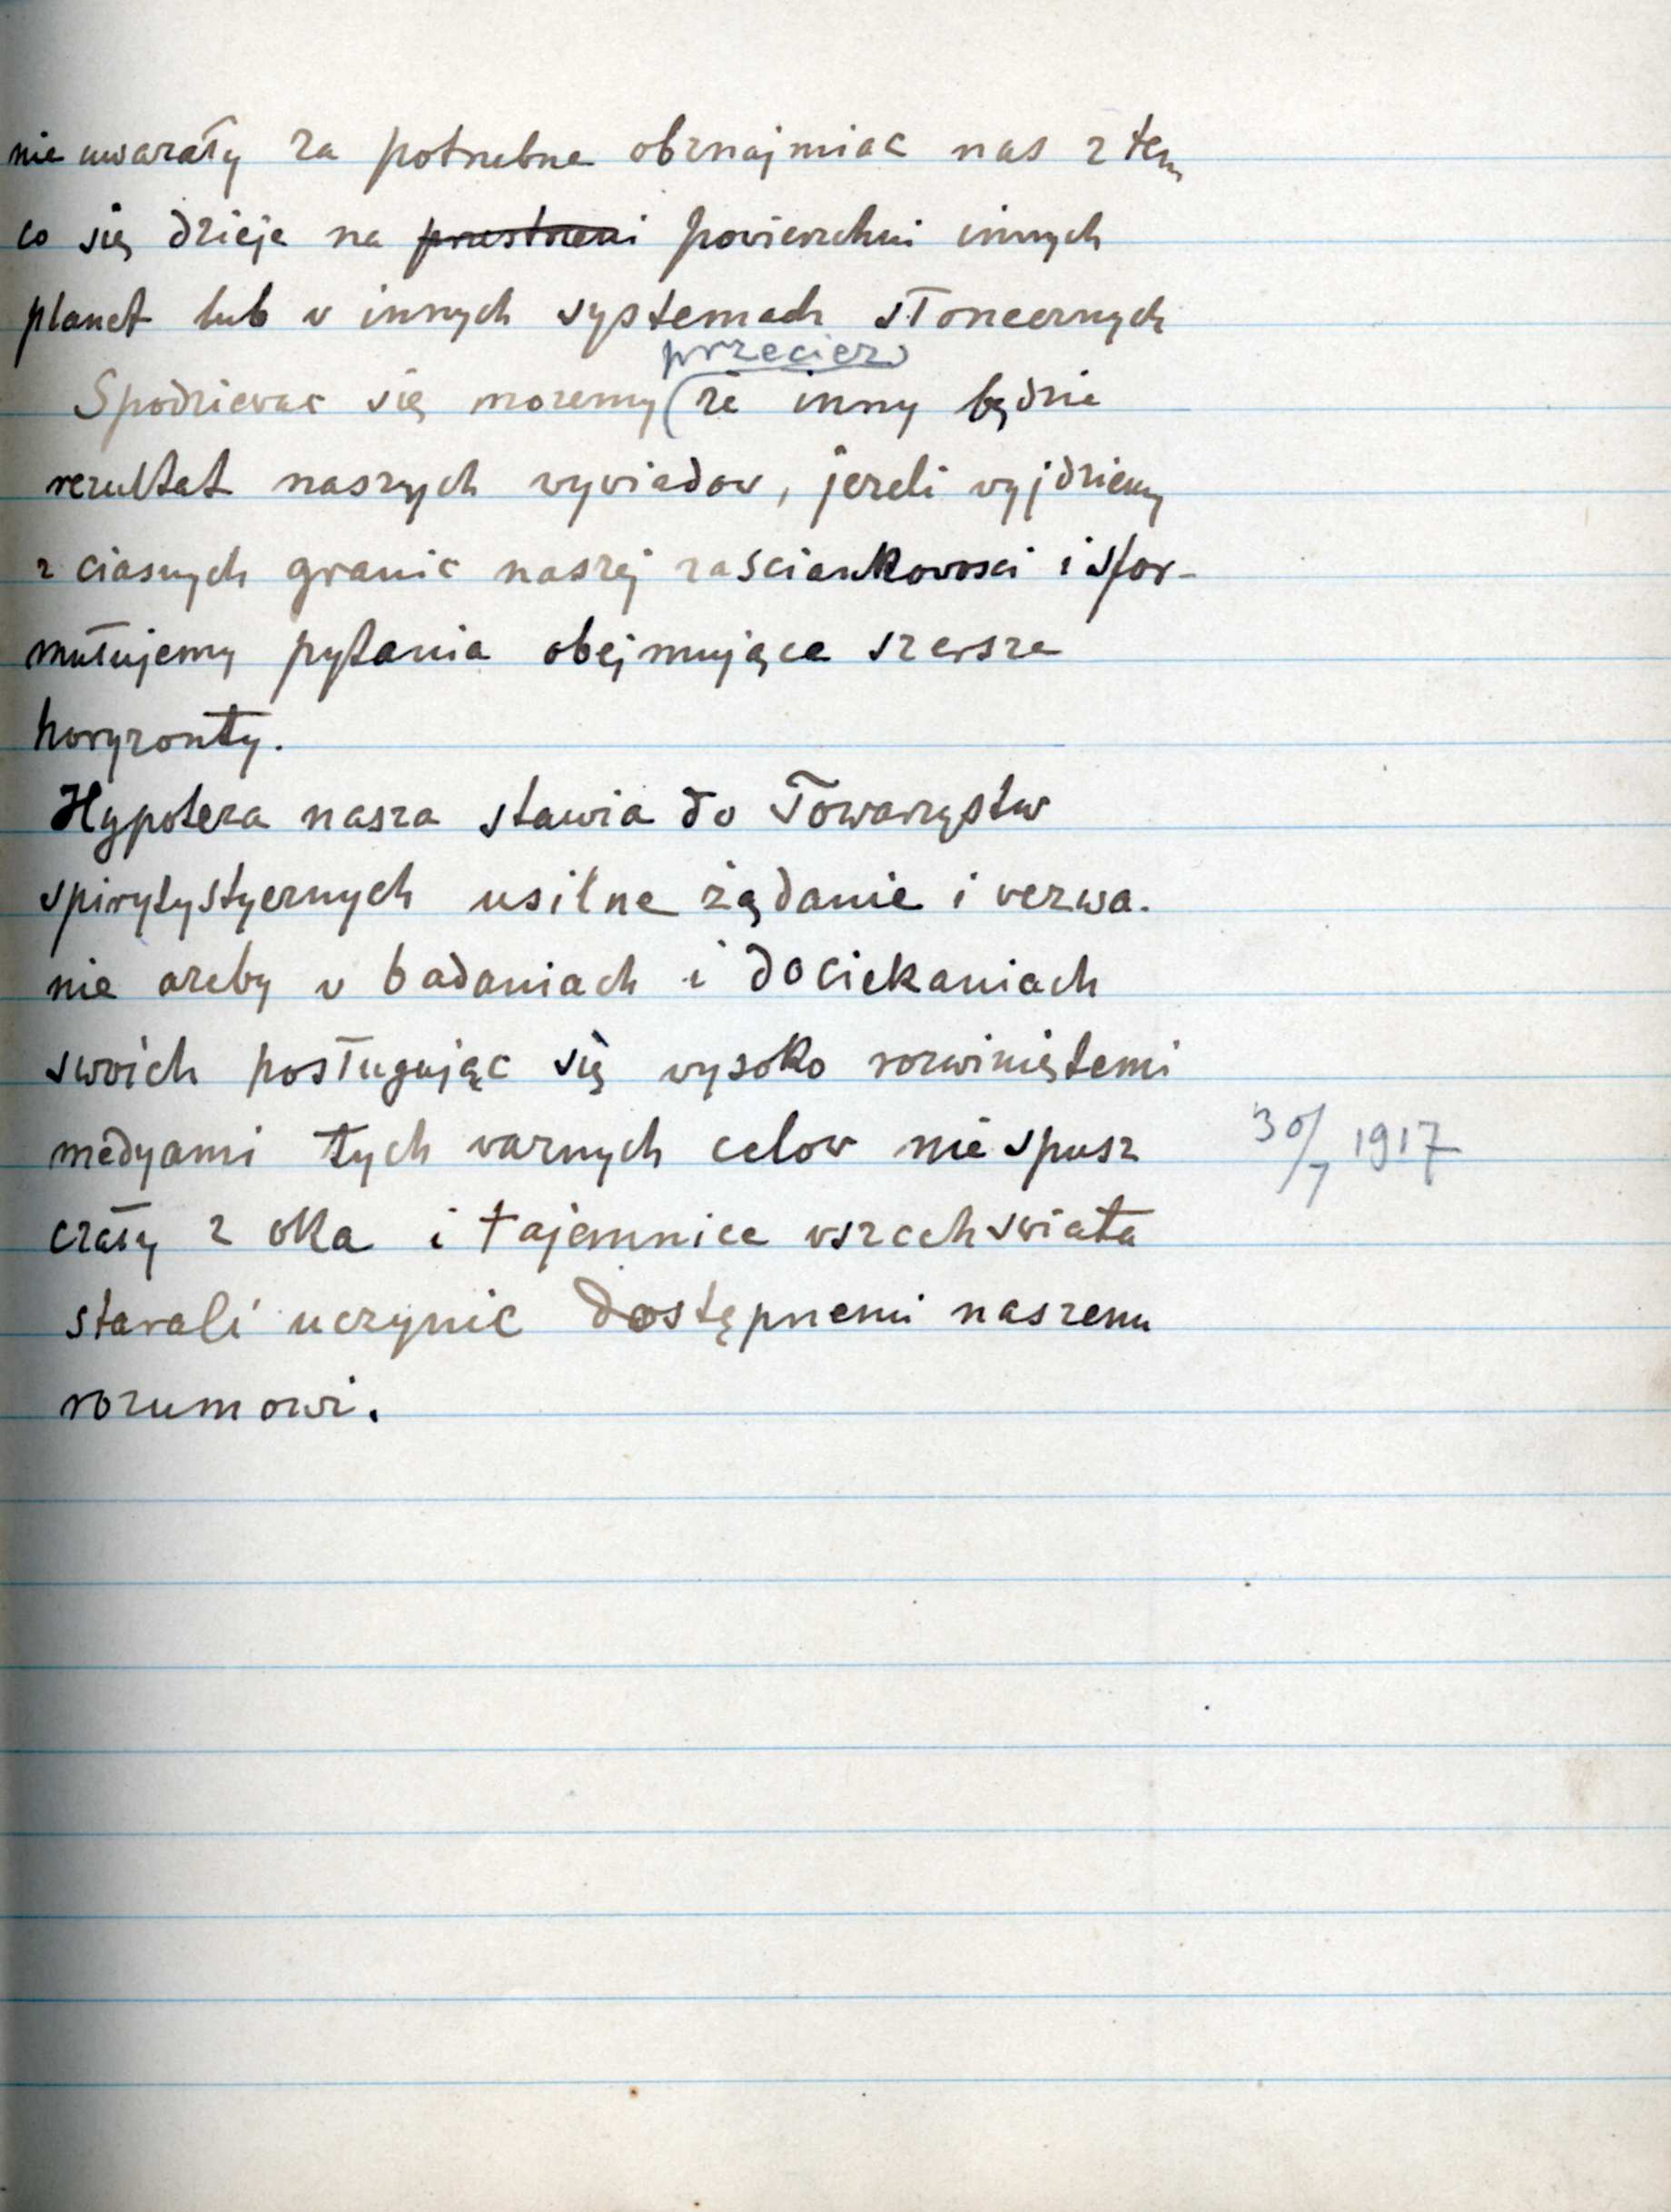 nie uwazały za potrzebne obznajmiac nas z tem
co się dzieje na przestrzeni powierzchni innych
planet lub w innych systemach słonecznych
przeciez
Spodziewac się mozemy (ze inny będzie
rezultat naszych wywiadow, jezeli wyjdziemy
z ciasnych granic naszej zasciankowosci i sfor-
mułujemy pytania obejmujące szersze
horyzonty.
Hypoteza nasza stawia do Towarzystw
spirytystycznych usilne żądanie i wezwa-
nie azeby w badaniach i dociekaniach
swoich posługując się wysoko rozwiniętemi
medyami tych waznych celow nie spusz
czały z oka i tajemnice wszechswiata
starali uczynic dostępnemi naszemu
rozumowi.
30/7 1917